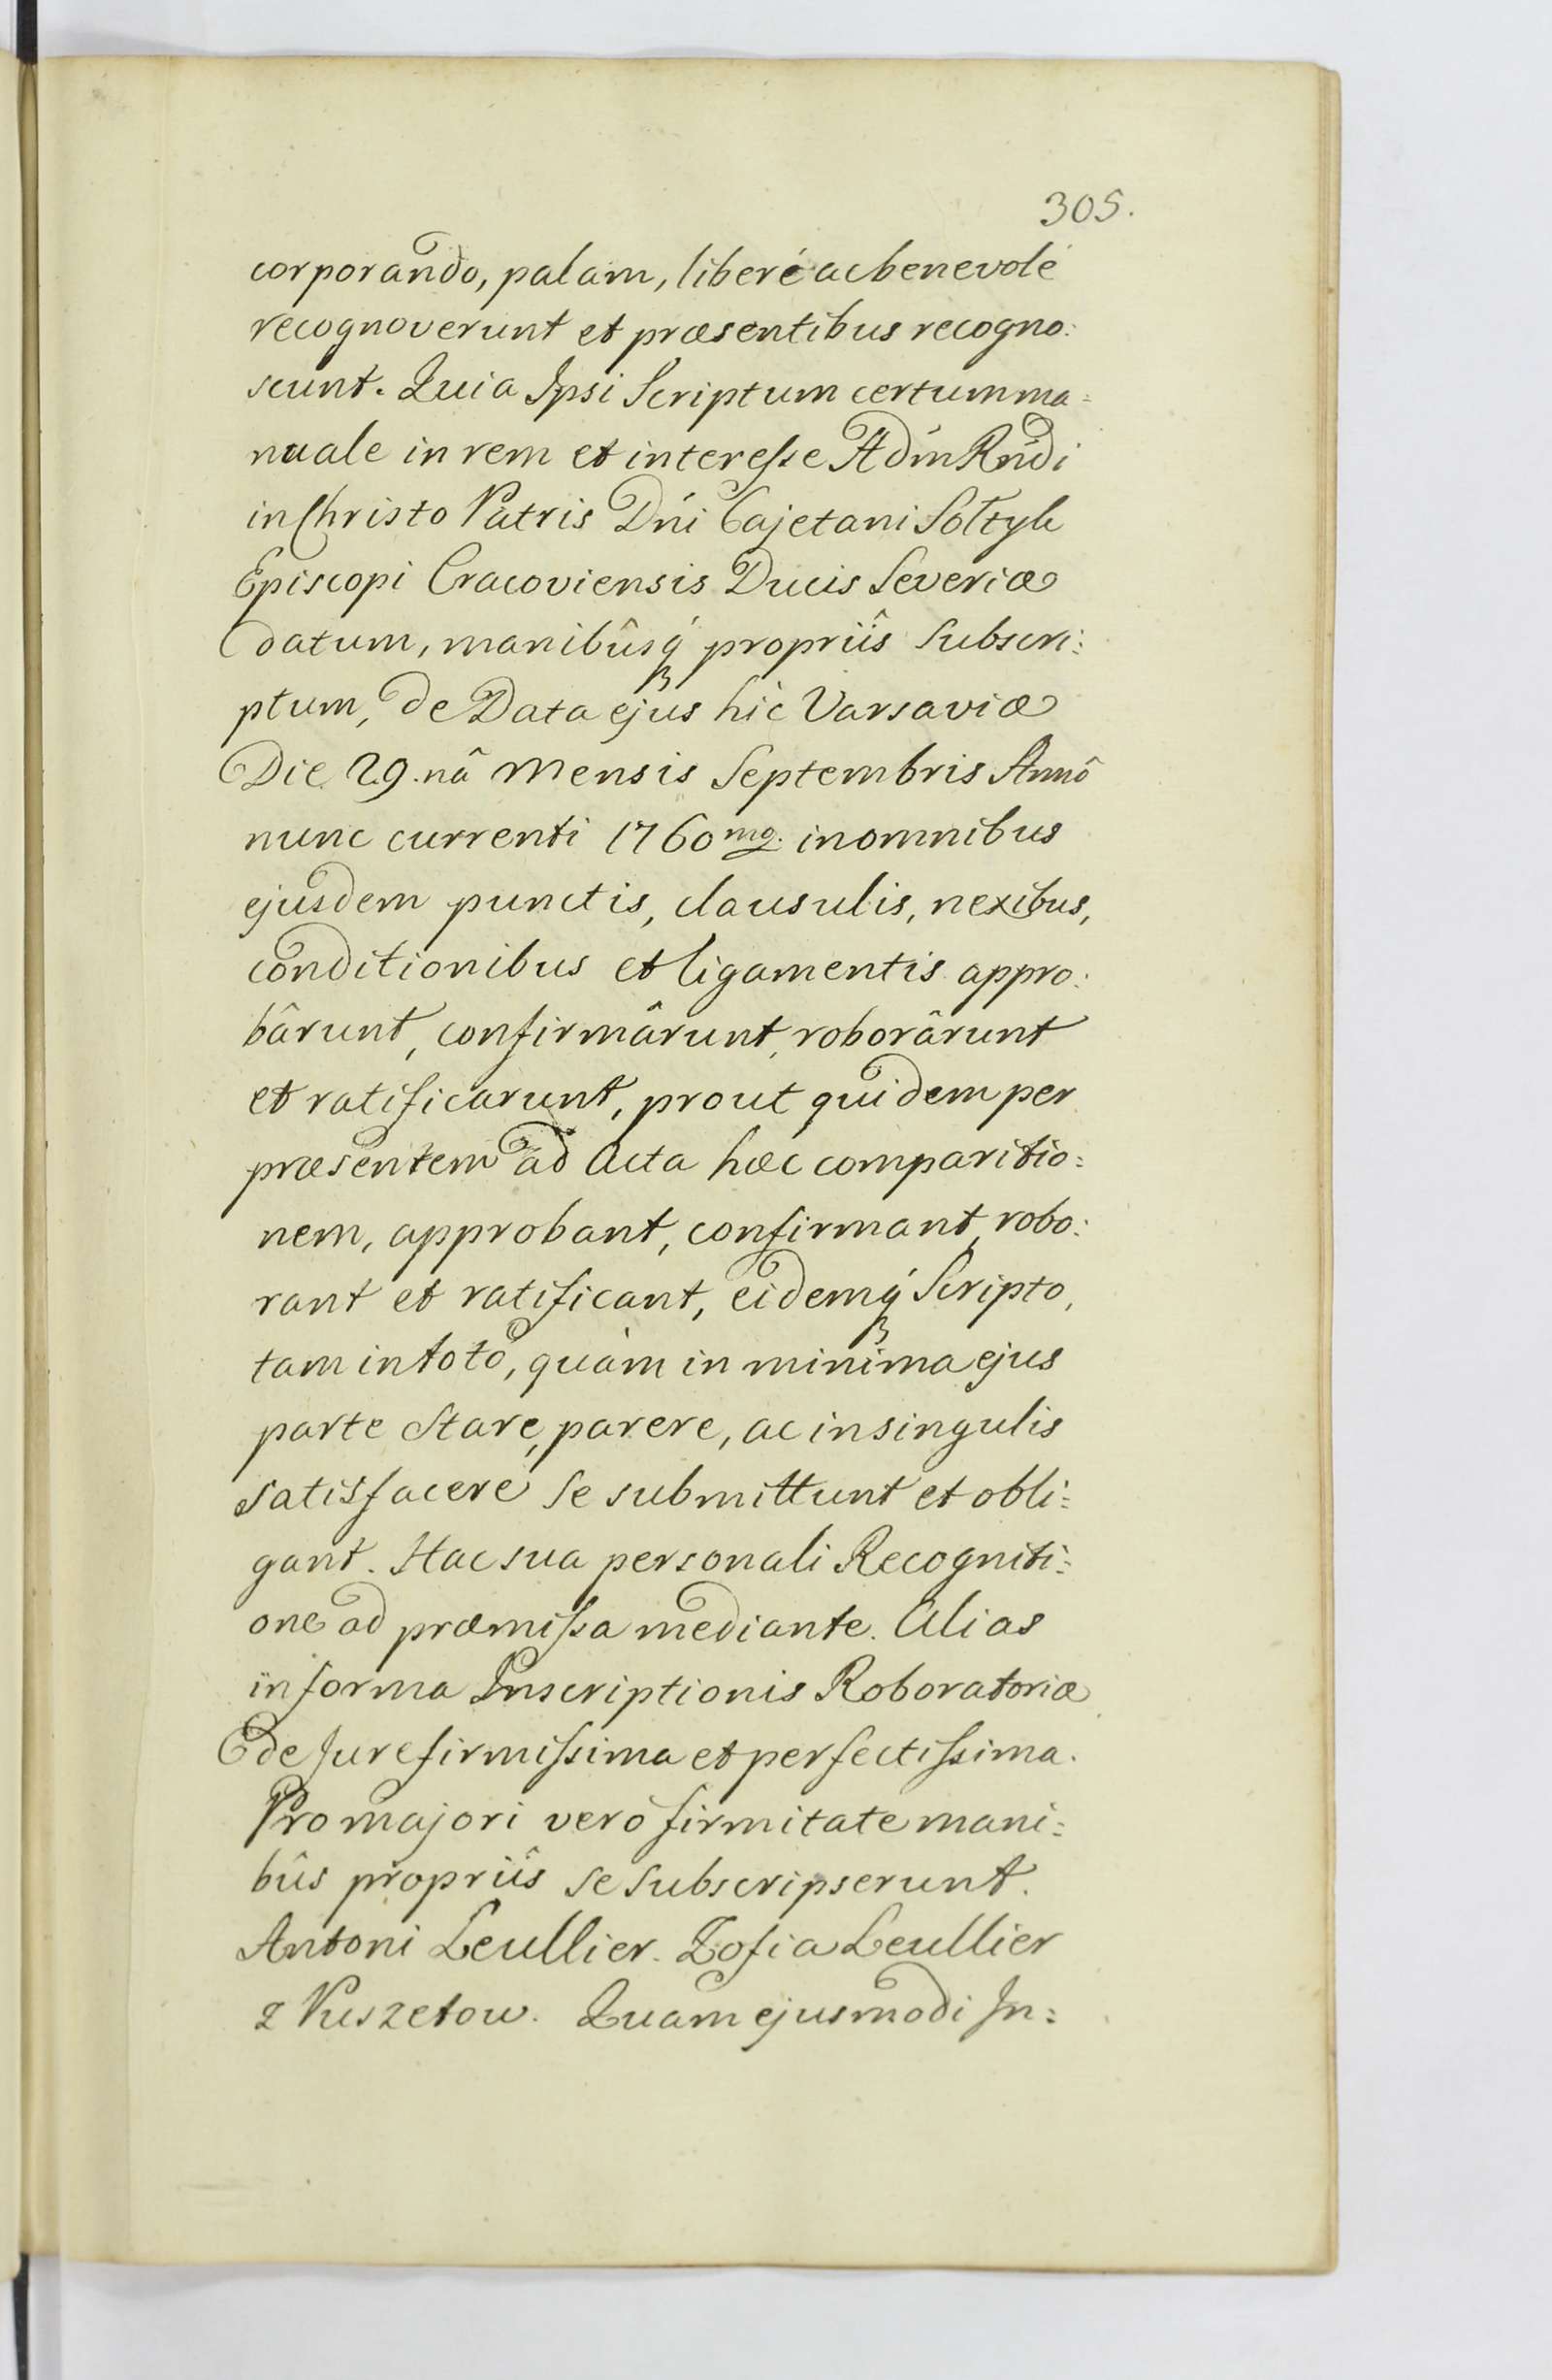 305.
corporando, palam, liberé ac benevolé
recognoverunt et præsentibus recogno:
scunt. Quia Ipsi Scriptum certum ma=
nuale in rem et interesse Adm Rndi
in Christo Patris Dni Cajetani Sołtyk
Episcopi Cracoviensis Ducis Severiæ
datum, manibûsq́ꝫ propriîs Subscri:
ptum, de Data ejus hic Varsaviæ
Die 29.nâ Mensis Septembris Annô
nunc currenti 1760mo. in omnibus
ejusdem punctis, clausulis, nexibus,
conditionibus et ligamentis appro:
bârunt, confirmârunt, roborârunt
et ratificarunt, prout quidem per
præsentem ad Acta hæc comparitio:
nem, approbant, confirmant, robo:
rant et ratificant, eidemq́ꝫ Scripto,
tam in toto, quàm in minima ejus
parte Stare, parere, ac in singulis
satisfacere se submittunt et obli:
gant. Hac sua personali Recogniti:
one ad præmissa mediante. Alias
in forma Inscriptionis Roboratoriæ
de Jure firmissima et perfectissima.
Pro majori verò firmitate mani:
bûs propriîs se subscripserunt.
Antoni Leullier. Zofia Leullier
z Puszetow. Quam ejusmodi In: